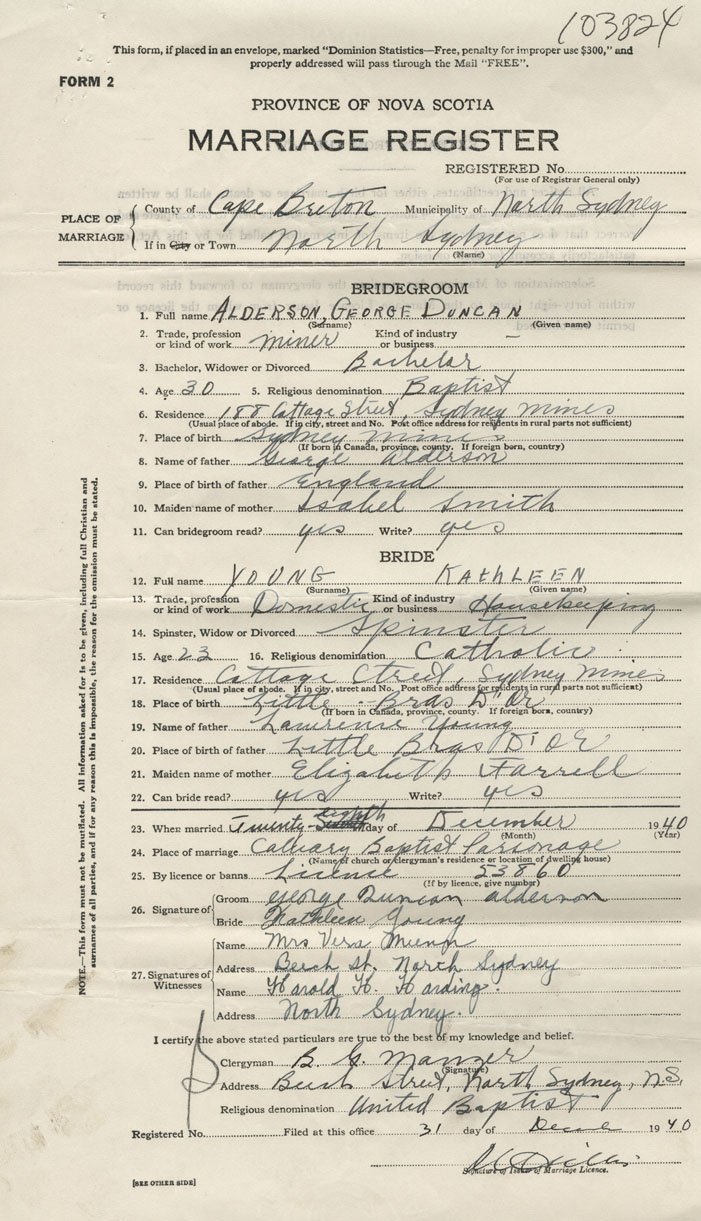 103824
This form, if placed in an envelope, marked "Dominion Statistics—Free, penalty for improper use $300," and
properly addressed will pass through the Mail "FREE".
FORM 2
PROVINCE OF NOVA SCOTIA
MARRIAGE REGISTER
REGISTERED No.
(For use of Registrar General only)
PLACE OF MARRIAGE
County of Cape Breton Municipality of North Sydney
If in City or Town North Sydney
(Name)
BRIDEGROOM
1. Full name ALDERSON, GEORGE DUNCAN
(Surname) (Given name)
2. Trade, profession or kind of work miner Kind of industry or business —
3. Bachelor, Widower or Divorced Bachelor
4. Age 30 5. Religious denomination Baptist
6. Residence 188 Cottage Street, Sydney Mines
(Usual place of abode. If in city, street and No. Post office address for residents in rural parts not sufficient)
7. Place of birth Sydney Mines
(If born in Canada, province, county. If foreign born, country)
8. Name of father George Alderson
9. Place of birth of father England
10. Maiden name of mother Isabel Smith
11. Can bridegroom read? yes Write? yes
BRIDE
12. Full name YOUNG KATHLEEN
(Surname) (Given name)
13. Trade, profession or kind of work Domestic Kind of industry or business Housekeeping
14. Spinster, Widow or Divorced Spinster
15. Age 23 16. Religious denomination Catholic
17. Residence Cottage Street, Sydney Mines
(Usual place of abode. If in city, street and No. Post office address for residents in rural parts not sufficient)
18. Place of birth Little Bras D'Or
(If born in Canada, province, county. If foreign born, country)
19. Name of father Lawrence Young
20. Place of birth of father Little Bras D'Or
21. Maiden name of mother Elizabeth Farrell
22. Can bride read? yes Write? yes
23. When married Twenty-eighth day of December 1940
(Month) (Year)
24. Place of marriage Calvary Baptist Parsonage
(Name of church or clergyman's residence or location of dwelling house)
25. By licence or banns Licence 53860
(If by licence, give number)
26. Signature of
Groom George Duncan Alderson
Bride Kathleen Young
27. Signatures of Witnesses
Name Mrs Vera Munn
Address Beech St. North Sydney
Name Harold H. Harding.
Address North Sydney.
I certify the above stated particulars are true to the best of my knowledge and belief.
Clergyman B. G. Manzer
(Signature)
Address Beech Street, North Sydney, N.S.
Religious denomination United Baptist
Registered No. Filed at this office 31 day of Dec 1940
Signature of Issuer of Marriage Licence.
[SEE OTHER SIDE]
NOTE.—This form must not be mutilated. All information asked for is to be given, including full Christian and
surnames of all parties, and if for any reason this is impossible, the reason for the omission must be stated.